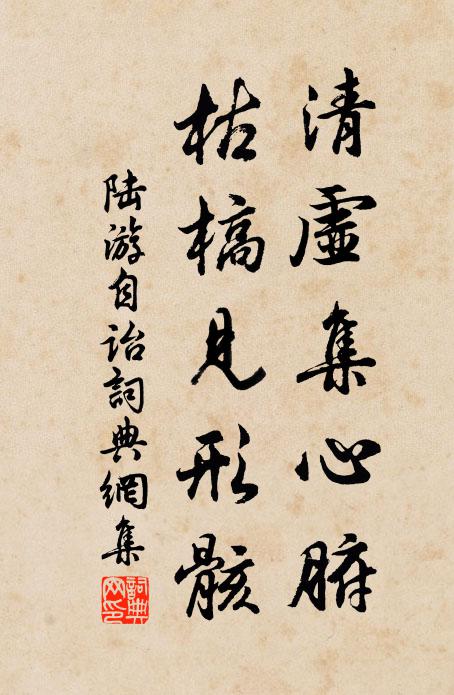 清虛集心腑
枯槁見形骸
陆游自诒詞典網集
詞典